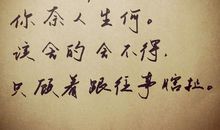 你奈人生何。
该舍的舍不得,
只顾着跟往事瞎扯。